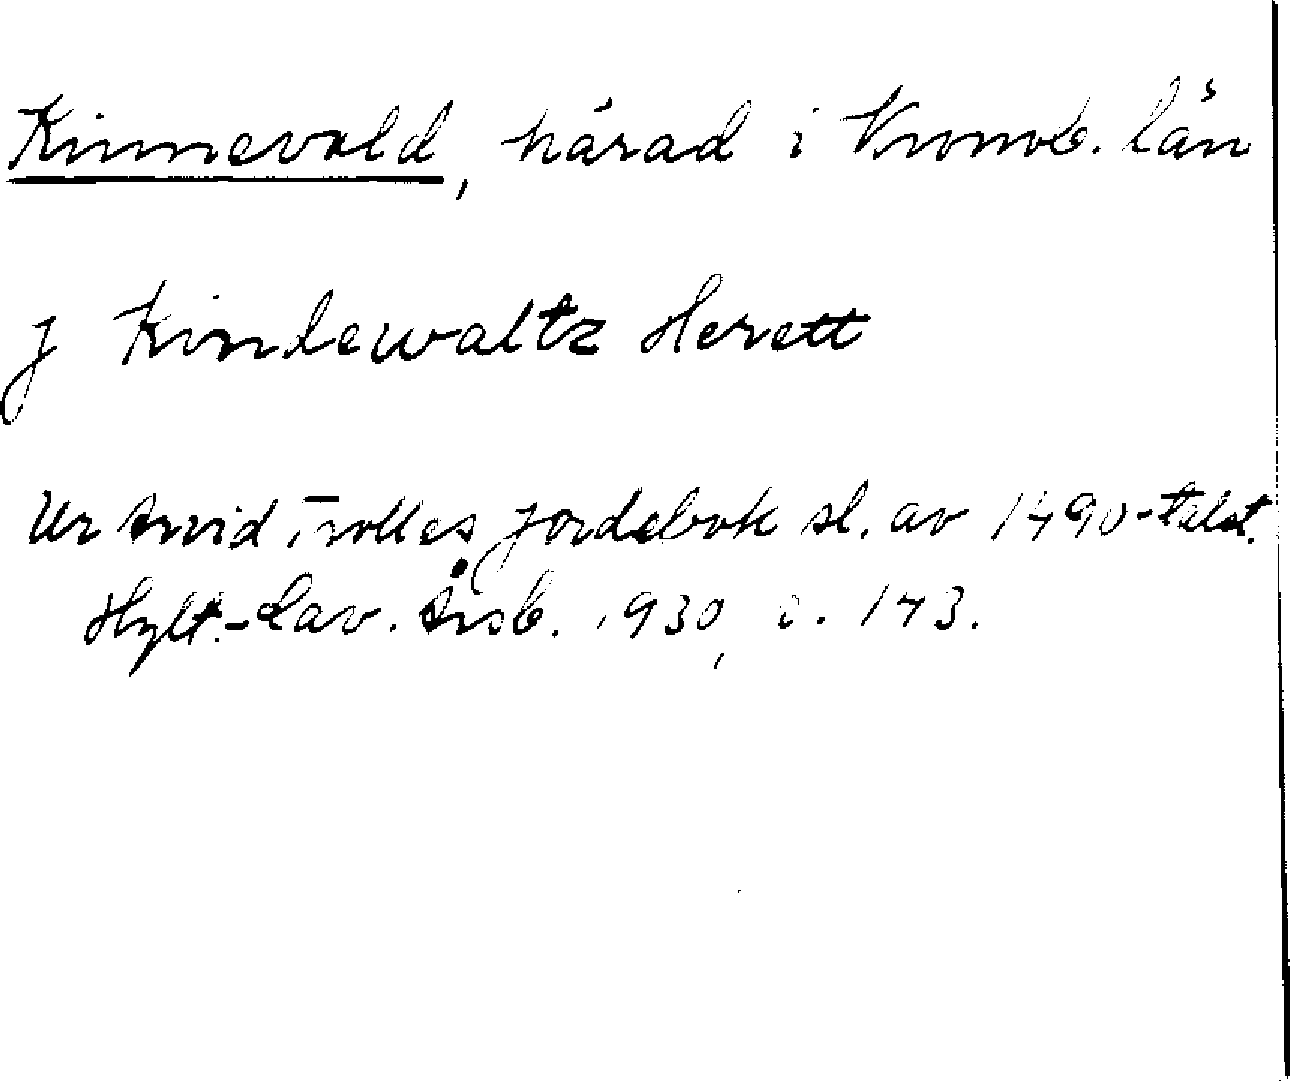 Kinnevald, härad i Kronob. län
J Kindewaltz Herett
Ur Arvid Trolles jordebok sl. av 1490-talet.
Hylt.-Cav. Årsb. 1930, s. 173.